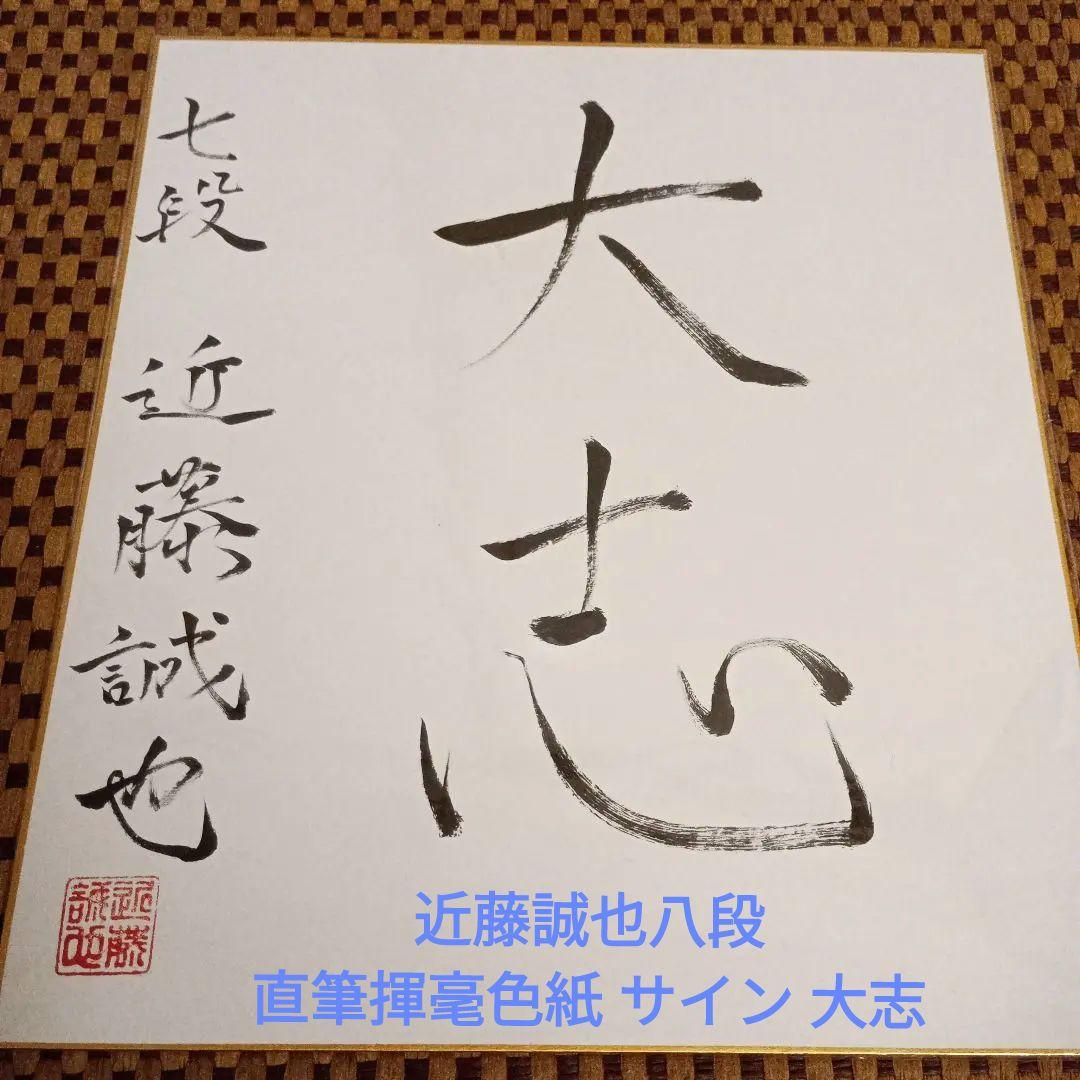 大志
七段 近藤誠也
近藤
誠也
近藤誠也八段
直筆揮毫色紙 サイン 大志